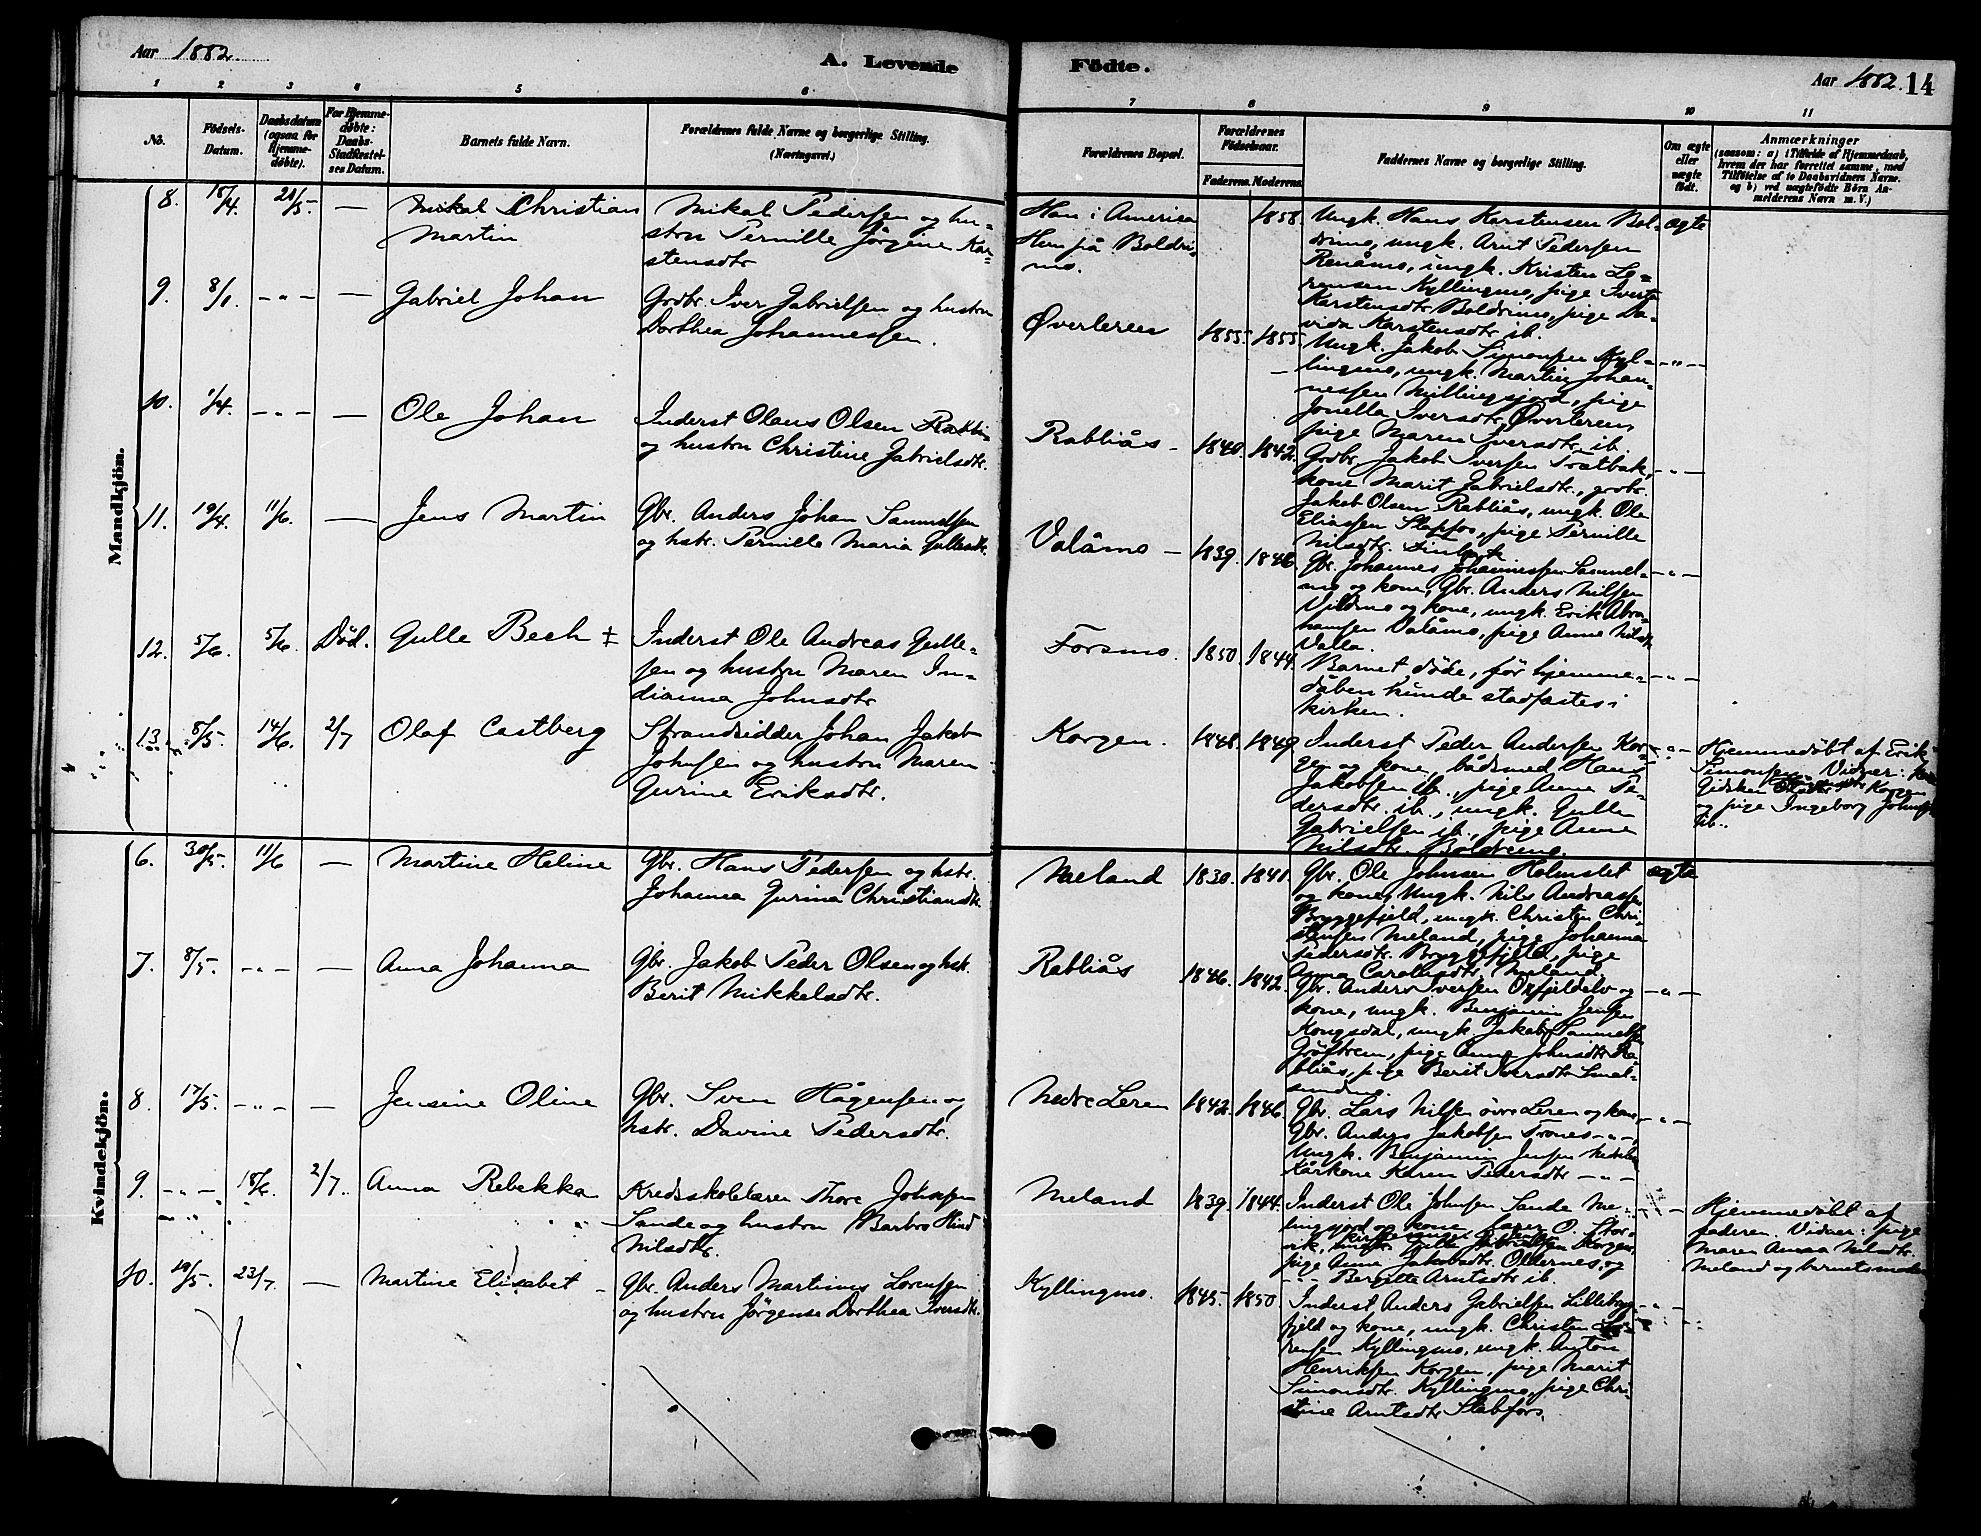 Aar 1882.
A. Levende
Födte.
Aar 1882. 14
1 2 3 4 5 6 7 8 9 10 11
No.
Födsels-
Datum.
Daabsdatum
(ogsaa for
Hjemme-
døbte).
For Hjemme-
døbte:
Daabs-
Stadfæstel-
ses Datum.
Barnets fulde Navn.
Forældrenes fulde Navne og borgerlige Stilling.
(Næringsvei.)
Forældrenes Bopæl.
Forældrenes
Födselsaar.
Faderens. Moderens.
Faddernes Navne og borgerlige Stilling.
Om ægte
eller
uægte
födt.
Anmærkninger
(saasom: a) i Tilfælde af Hjemmedaab,
hvem der har forrettet samme, med
Tilföielse af to Daabsvidners Navne.
og b) ved uægtefödte Börn An-
melderens Navn m. V.)
Mandkjön.
8. 18/4. 21/5. — Mikal Christian
Martin
Mikal Pedersen og hu-
stru Pernille Jørgine Kar-
stensdtr
Han i America
Hun på Boldri-
mo.
1858.
Ungk. Hans Karstensen Bol-
drimo, ungk. Arnt Pedersen
Renåmo, ungk. Kristen Lo-
rensen Kyllingmo, pige
Karstensdtr Boldrimo, pige Da-
vida Karstensdtr ib.
ægte
9. 8/1. — " — — Gabriel Johan
Grdbr. Iver Gabrielsen og hustru
Dorthea Johannessen.
Øverleren
1855. 1855.
Ungk. Jakob Simonsen Kyl-
lingmo, ungk. Martin Johan-
nessen Millingsjord, pige
Jonella Iversdtr Øverleren,
pige Maren Iversdtr. ib.
— " —
10. 1/4. — " — — Ole Johan
Inderst Olaus Olsen Rabli
og hustru Christine Gabrielsdtr.
Rabliås —
1840. 1842.
Grdbr. Jakob Iversen Trætbak,
kone Marit Gabrielsdtr., grdbr.
Jakob Olsen Rabliås, ungk. Ole
Eliassen Slapfos, pige Pernille
Nilsdtr.
— " —
11. 19/4. 11/6. — Jens Martin
Gbr. Anders Johan Samuelsen
og hstr. Pernille Maria Gullesdtr.
Valåmo —
1839. 1846.
Gbr. Johannes Johannessen Sammel-
mo og kone, Gbr. Anders Nilsen
Vildmo og kone, ungk. Erik Abra-
hamsen Valåmo, pige Anne Nilsdtr
Valla.
— " —
12. 5/6. 5/6. Död. Gulle Bech ‡
Inderst Ole Andreas Gulle-
sen og hustru Maren In-
dianna Johnsdtr
Forsmo.
1850. 1844.
Barnet døde, før hjemme-
dåben kunde stadfæstes i
kirken.
— " —
13. 8/5. 14/6. 2/7 Olaf Castberg
Strandsidder Johan Jakob
Johnsen og hustru Maren
Gurine Eriksdtr.
Korgen.
1848. 1849.
Inderst Peder Andersen Kor-
gen og kone, bådsmd. Hans
Jakobsen ib., pige Anne Pe-
dersdtr. ib., ungk. Gulle
Gabrielsen ib., pige Anne
Nilsdtr. Boldremo.
— " —
Hjemmedøbt af Erik
Simonsen. Vidner:
Gidsken Korgen
og pige Ingeborg Johnsen
ib.
Kvindekjön.
6. 30/5. 11/6 — Martine Heline
Gbr. Hans Pedersen og hstr.
Johanna Gurina Christiansdtr.
Meland
1830. 1841.
Gbr. Ole Johnsen Holmslet
og kone, Ungk. Nils Andreassen
Bryggefjeld, ungk. Christen Chri-
stensen Meland, pige Johanna
Pedersdtr. Bryggefjeld, pige
Anna Meland.
ægte
7. 8/5. — " — — Anna Johanna
Gbr. Jakob Peder Olsen og hst.
Berit Mikkelsdtr.
Rabliås
1846. 1842.
Gbr. Anders Iversen Oxfjeldelv og
kone, ungk. Benjamin Jensen
Kongsdal, ungk. Jakob Sammelsen
pige Anna Johnsdtr Ra-
bliås, pige Berit Iversdtr Smal-
sundmo
— " —
8. 17/5. — " — — Jensine Oline
Gbr. Sven Hågensen og
hstr. Davine Pedersdtr.
Nedre Leren
1842. 1846.
Gbr. Lars Nilsen övre Leren og kone,
Gbr. Anders Jakobsen Trones — " —
Ungk. Benjamin Jensen
Kårkone Karen Pedersdtr — " —
— " —
9. — " — 18/6. 2/7. Anna Rebekka
Kredsskolelærer Thore Johnsen
Sande og hustru Barbro Hind
Nilsdtr.
Meland
1839. 1844.
Inderst Ole Johnsen Sande Me-
og kone,
pige Anne Jakobsdtr. Oldernes, og
— " — Bergitte Arntsdtr ib.
Hjemmedøbt af
faderen. Vidner: pige
Maren Anna Nilsdtr.
Meland og barnets moder
10. 19/5. 23/7. — Martine Elisabet
Gbr. Anders Martinus Lorensen
og hustru Jørgense Dorthea Iversdtr.
Kyllingmo.
1845. 1850
Inderst Anders Gabrielsen Lillebryg-
fjeld og kone, ungk. Christen Lo-
rensen Kyllingmo, ungk. Anton
Henriksen Korgen, pige Marit
Simonsdtr. Kyllingmo, pige Chri-
stine Arntsdtr Slabfors.
— " —